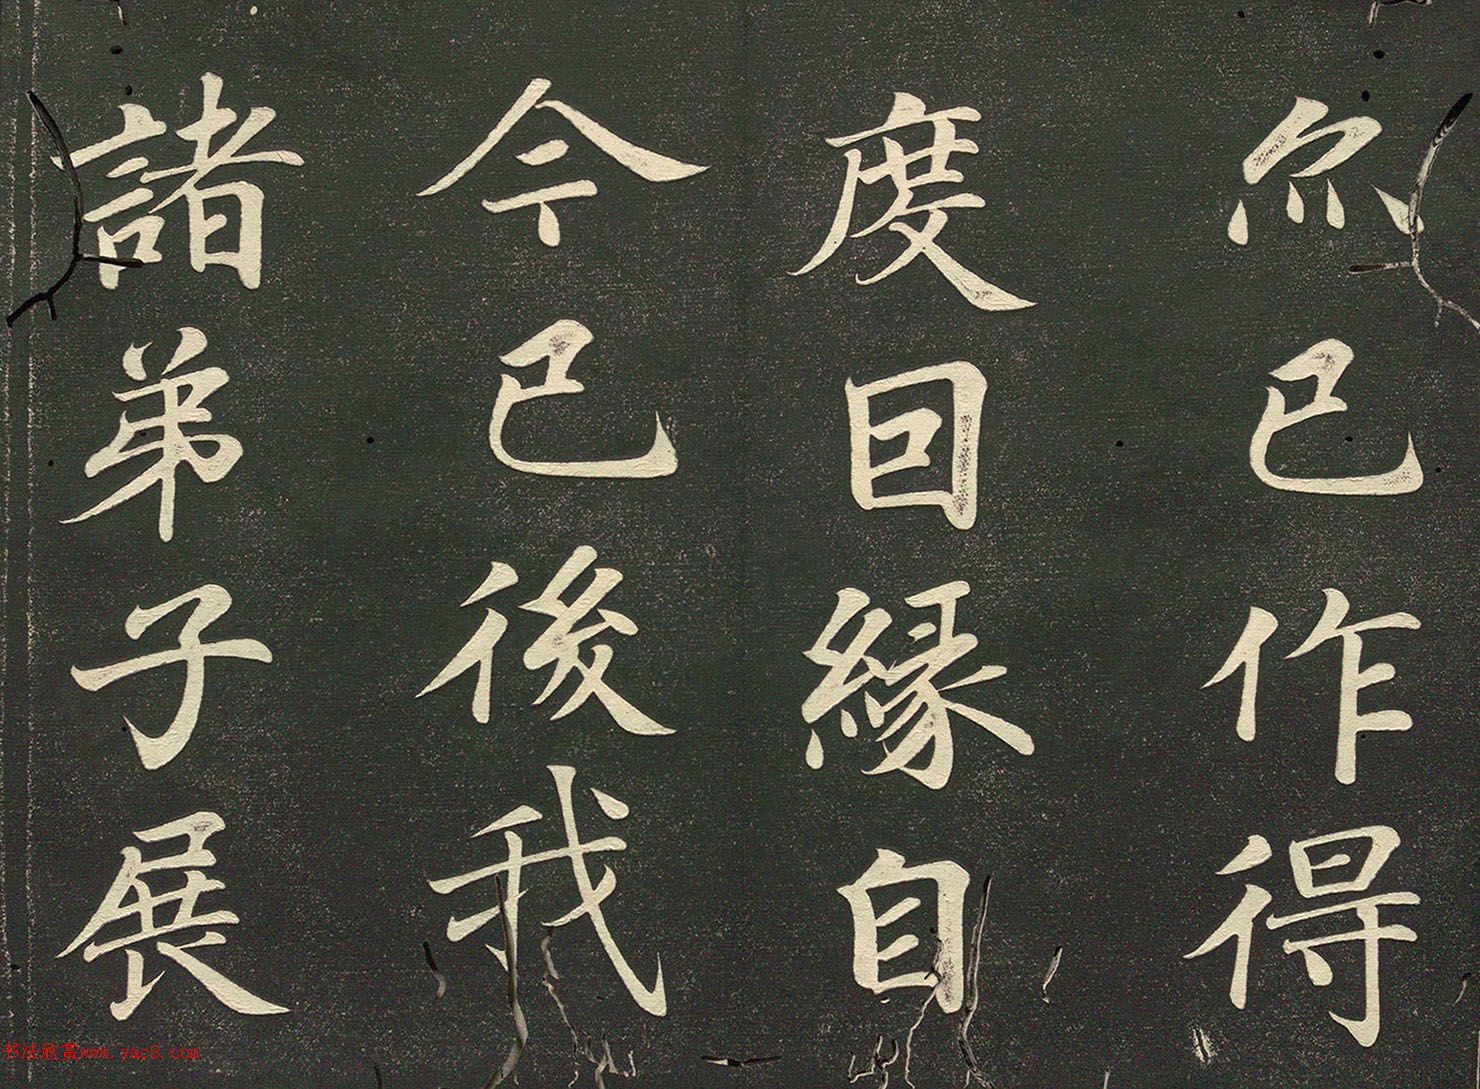 亦已作得
度囙縁自
今已後我
諸弟子展
书法欣赏www.yac8.com